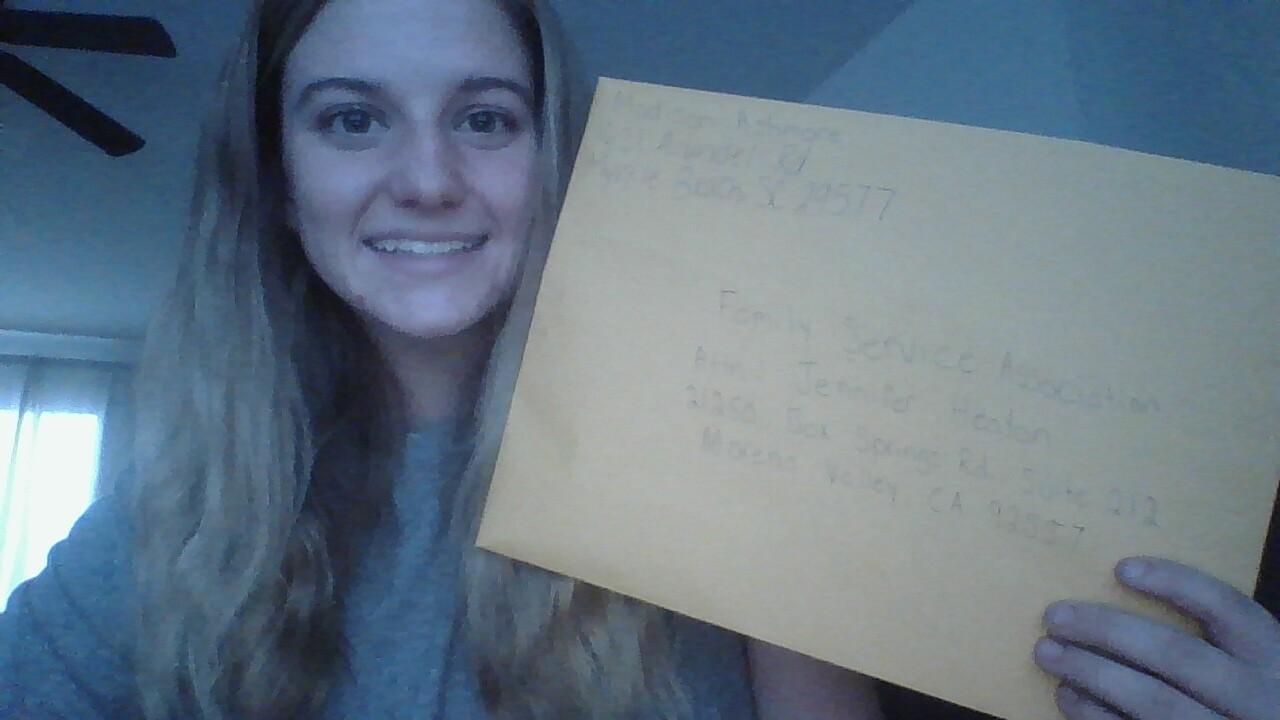 Rd
Beach SC 29577
Family Service Association
Attn: Jennifer Heaton
21250 Box Springs Rd. Suite 212
Moreno Valley, CA 92557